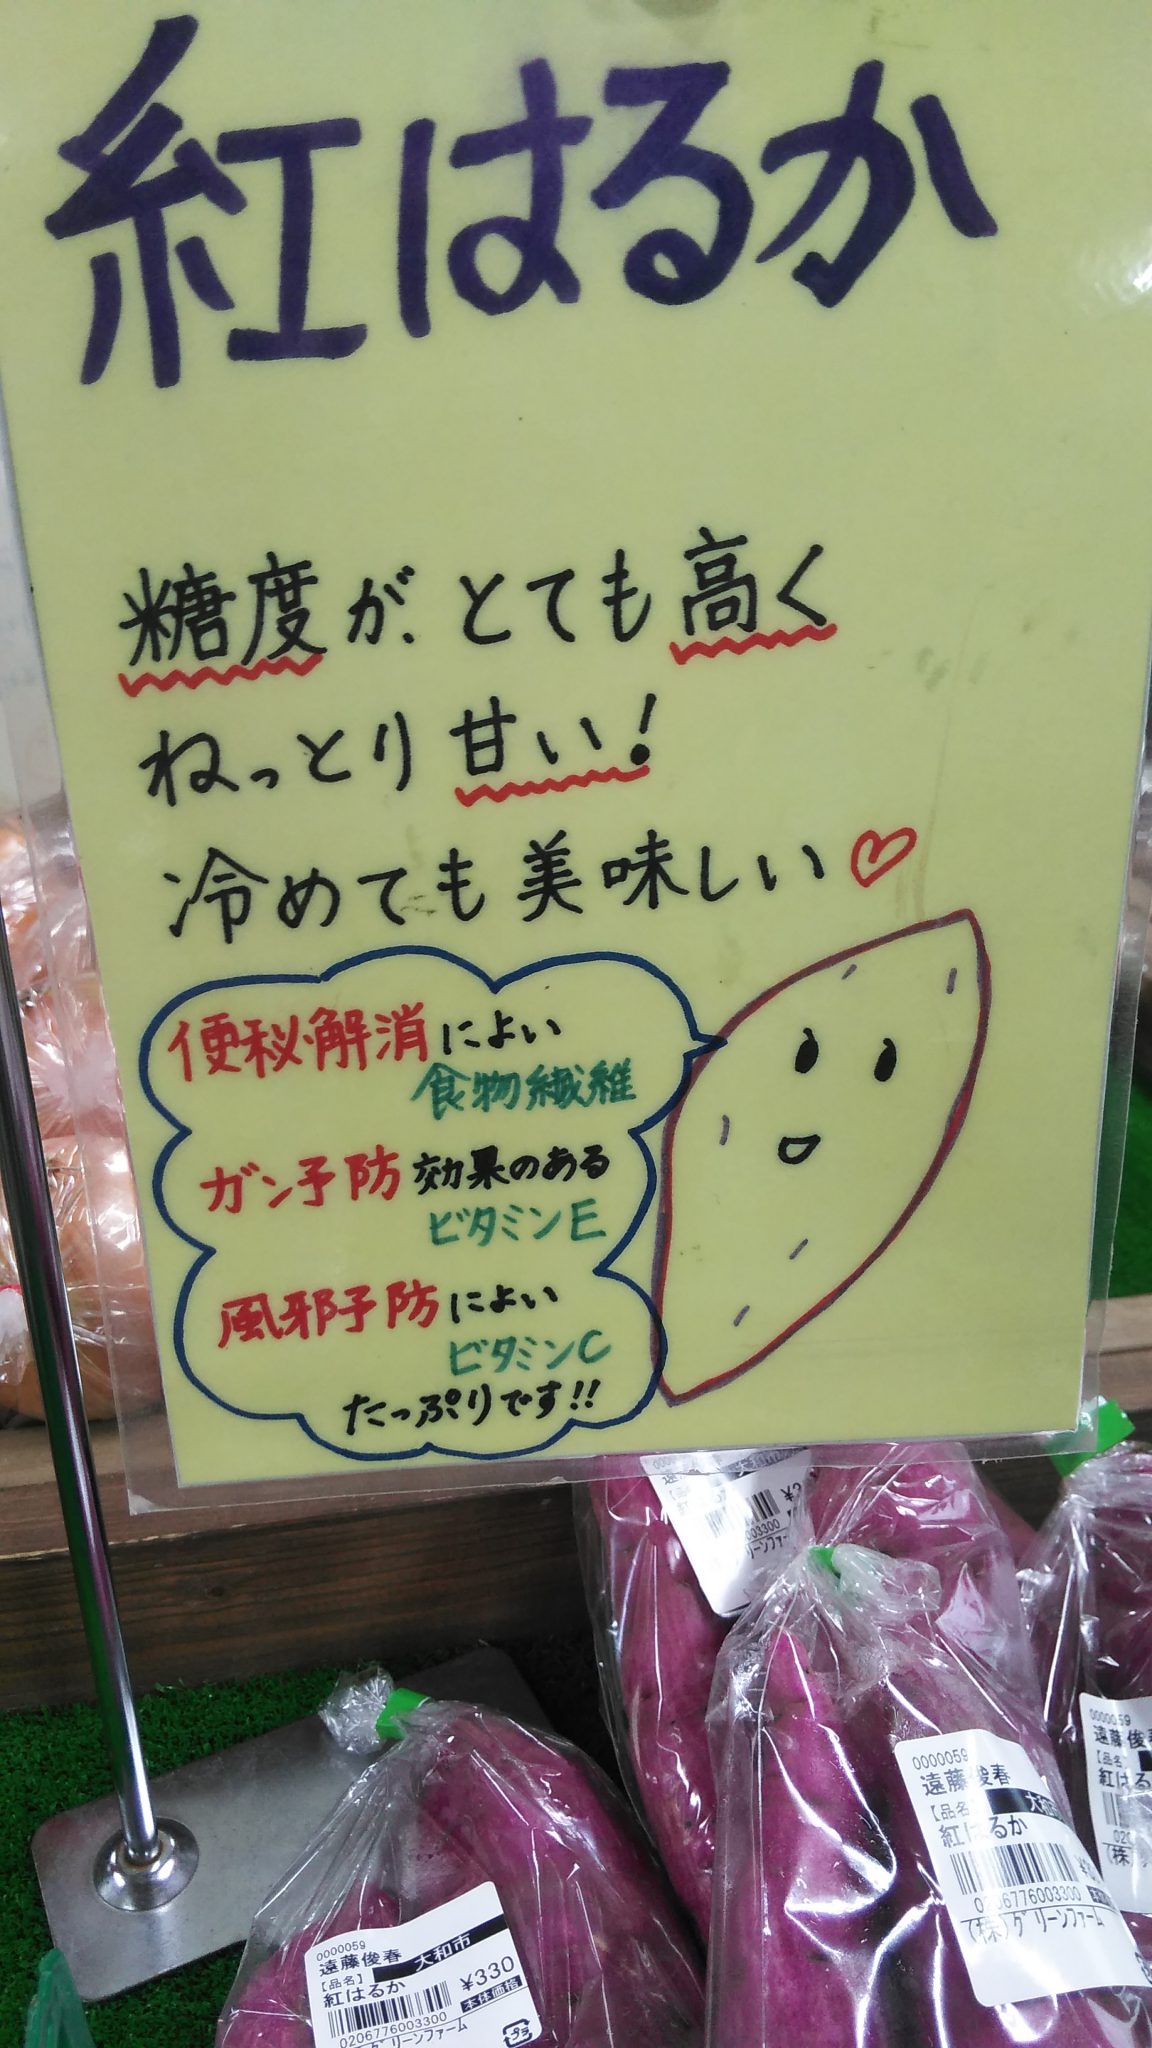 紅はるか
糖度が、とても高く
ねっとり甘い!
冷めても美味しい♡
便秘解消によい
食物繊維
ガン予防効果のある
ビタミンE
風邪予防によい
ビタミンC
たっぷりです!!
0000059
遠藤俊春
大和市
【品名】
紅はるか
¥330
本体価格
0206776003300
グリーンファーム
プラ
0000059
遠藤俊春
【品名】
大和市
紅はるか
0206776003300
(株)グリーンファーム
0000059
遠藤俊春
【品名】
紅はるか
(株)